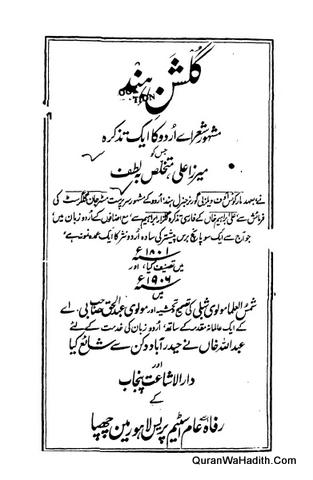 گلشنِ ہند
مشہور شعراے اُردو کا ایک تذکرہ
جس کو
میرزا علی متخلص بہ لطف
نے بعہد مارکوئس آف ویلزلی گورنر جنرل ہند، اُردو کے مشہور سرپرست مسٹر جان گلکرسٹ کی
فرمائش سے علی ابراہیم خان کے فارسی تذکرہ گلزار ابراہیم سے مع اضافوں کے اُردو زبان میں،
جو آج سے ایک سو پانچ برس پیشتر کی سادہ اُردو نثر کا ایک عمدہ نمونہ ہے،
۱۸۰۱ء
میں تصنیف کیا، اور
۱۹۰۶ء
میں
شمس العلما مولوی شبلی کی تصحیح و تحشیہ، اور مولوی عبد الحق صاحب بی۔ اے
کے ایک عالمانہ مقدمہ کے ساتھ، اُردو زبان کی خدمت کے لئے
عبد اللہ خاں نے حیدرآباد دکن سے شائع کیا
اور
دار الاشاعت پنجاب
کے
رفاہ عام اسٹیم پریس لاہور مین چھپا
QuranWaHadith.Com